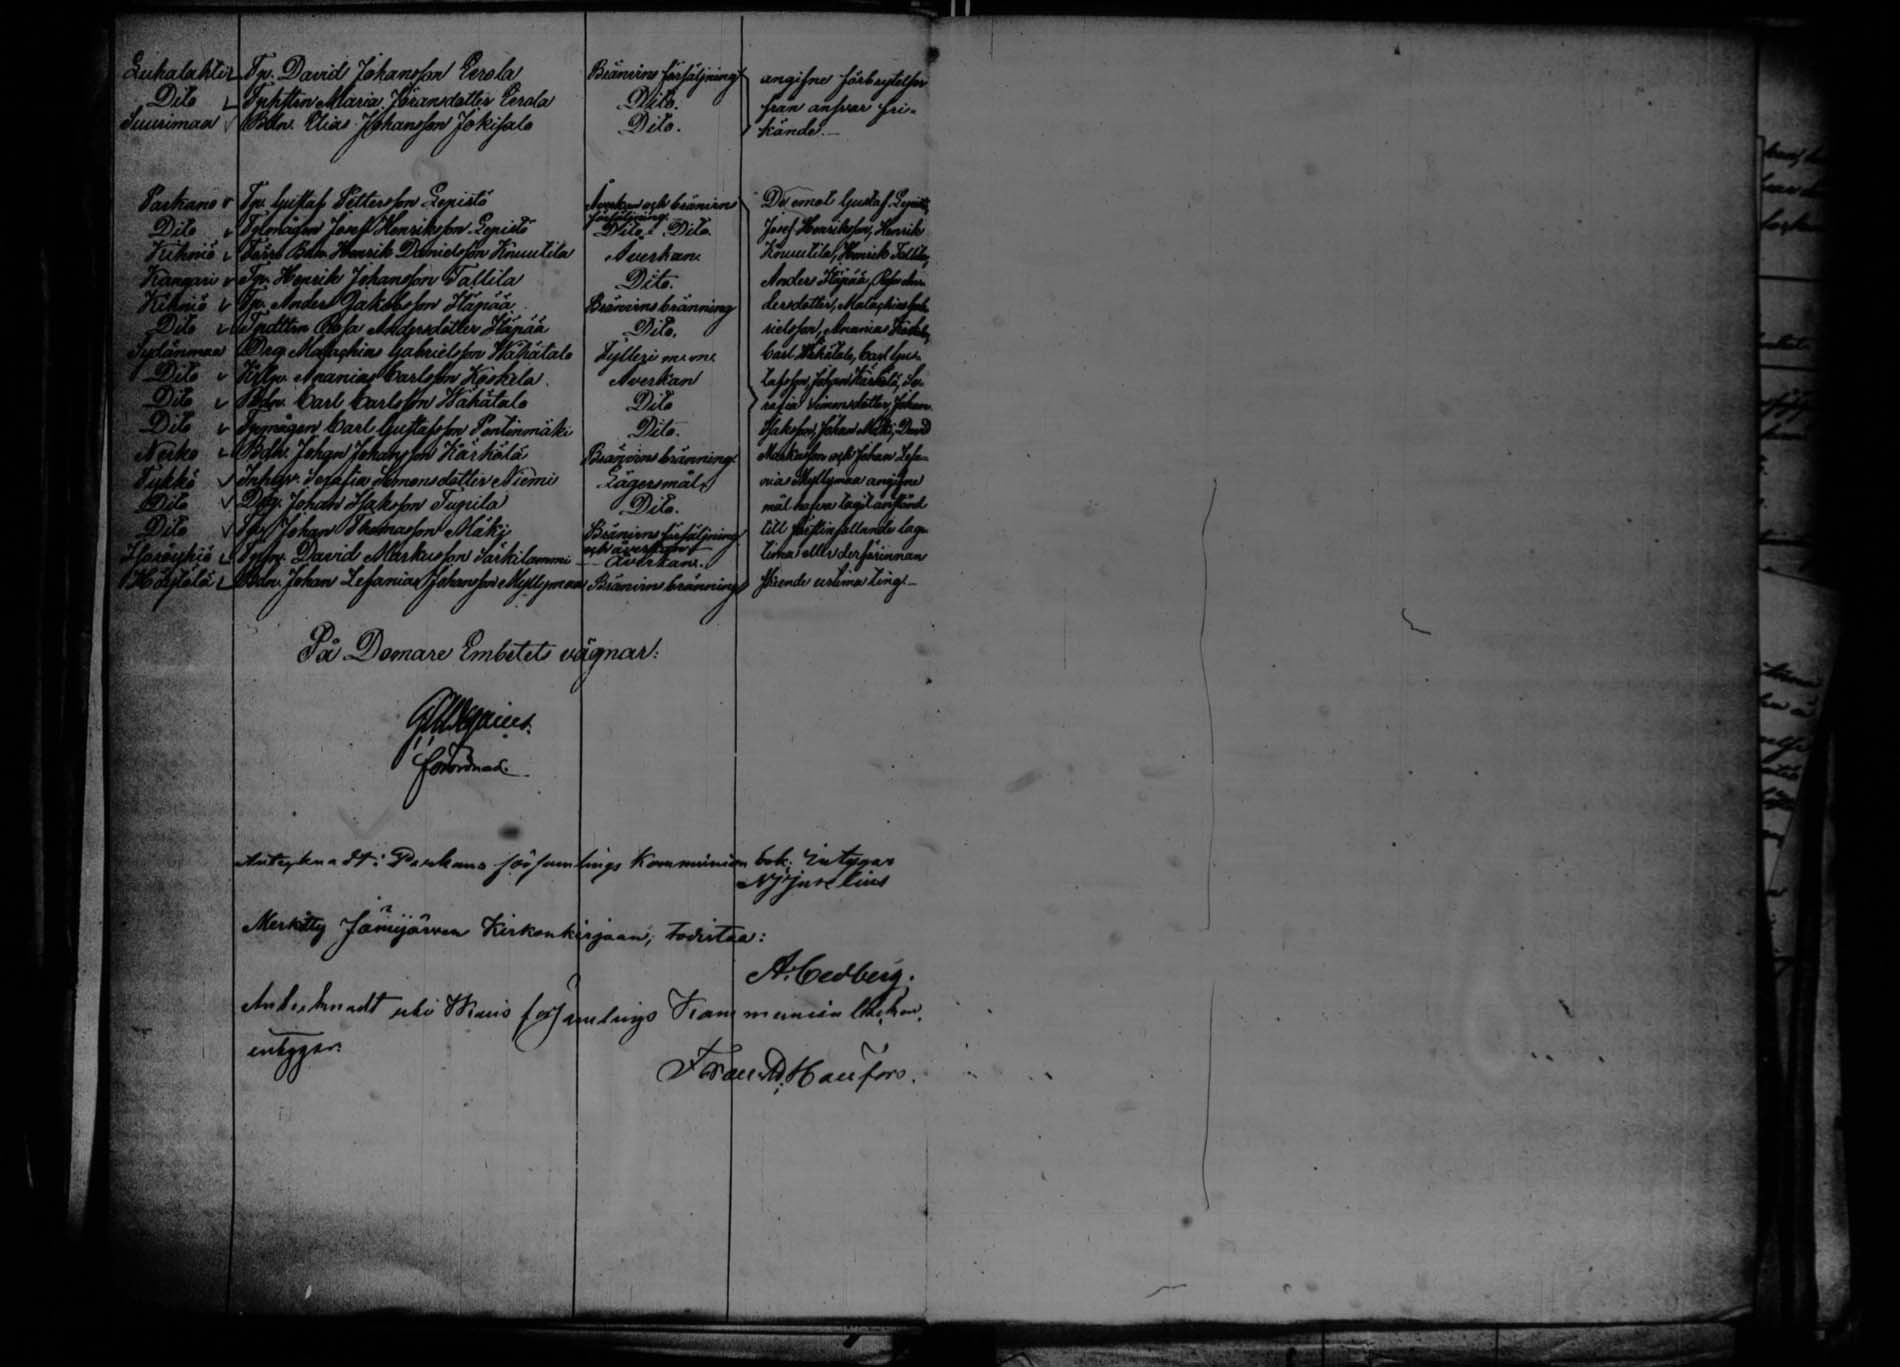 Luhalahti Tp. David Johansson Eerola Bränvins försäljning angifne förbrytelser
Dito Tphstrn Maria Jöransdotter Eerola Dito. från ansvar fri-
Suurimaa Bdn. Elias Johansson Jokisalo Dito. kände.—
Parkano Tp. Gustaf Pettersson Lepistö Åverkan och bränvins försäljning De emot Gustaf Lepistö,
Dito Josef Henriksson Lepistö Dito. Dito. Josef Henriksson, Henrik
Kihniö Bdn. Henrik Danielsson Knuutila Åverkan. Knuutila, Henrik Tallila,
Kangari Tp. Henrik Johansson Tallila Dito. Anders Häpää, Rosa An-
Kihniö Tp. Anders Jakobsson Häpää Bränvins bränning dersdotter, Malachias Gab-
Dito Rosa Andersdotter Häpää Dito. rielsson, Ananias Koskela,
Sydänmaa Drg. Malachias Gabrielsson Wähätalo Fylleri m. m. Carl Wähätalo, Carl Gus-
Dito Ananias Carlsson Koskela. Åverkan tafsson, Johan Kärkölä, Se-
Dito Bdn. Carl Carlsson Wähätalo Dito rafia Simonsdotter, Johan
Dito Tpmågen Carl Gustafsson Pentinmäki Dito. Isaksson, Johan Mäki, David
Nerko Bdn. Johan Johansson Kärkölä Bränvins bränning. Markusson och Johan Lefa-
Tykkö Inhys. Serafia Simonsdotter Niemi Lägersmål. nias Myllymaa angifne
Dito Drg. Johan Isaksson Tuquila Dito. mål hafva tagit anstånd
Dito Johan Thomasson Mäki Bränvins försäljning och åverkan till härstinfallande lag-
David Markusson Särkilammi Åverkan. tima eller derförinnan
Bdn. Johan Lefanias Johansson Myllymaa Bränvins bränning skeende urtima ting.—
På Domare Embetets vägnar:
förordnad.
Antecknadt i Parkano församlings Kommunion bok; intygar
Merkitty Jämijärven Kirkonkirjaan; todistaa:
A. Cedberg.
Antecknadt uti församlings Kommunion
intygar:
Frans Ad. Hanfors.